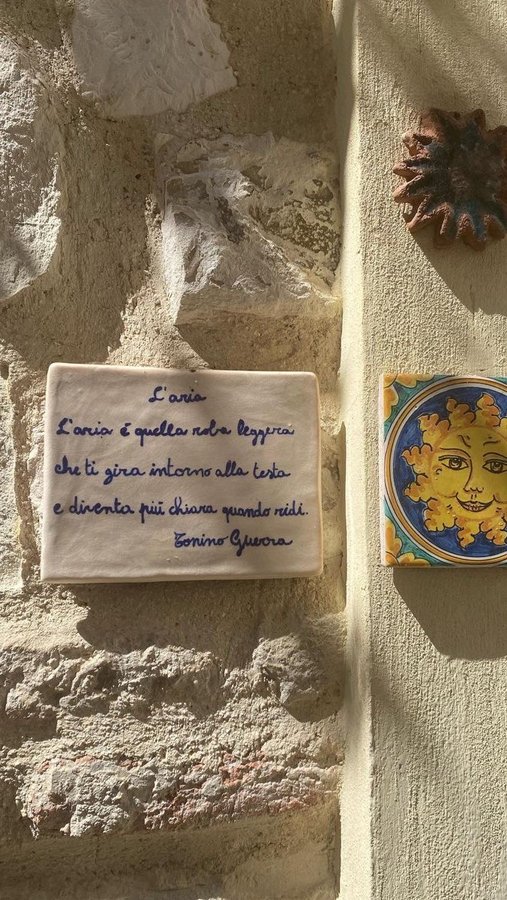 L'aria
L'aria é quella roba leggera
che ti gira intorno alla testa
e diventa piú chiara quando ridi.
Tonino Guerra